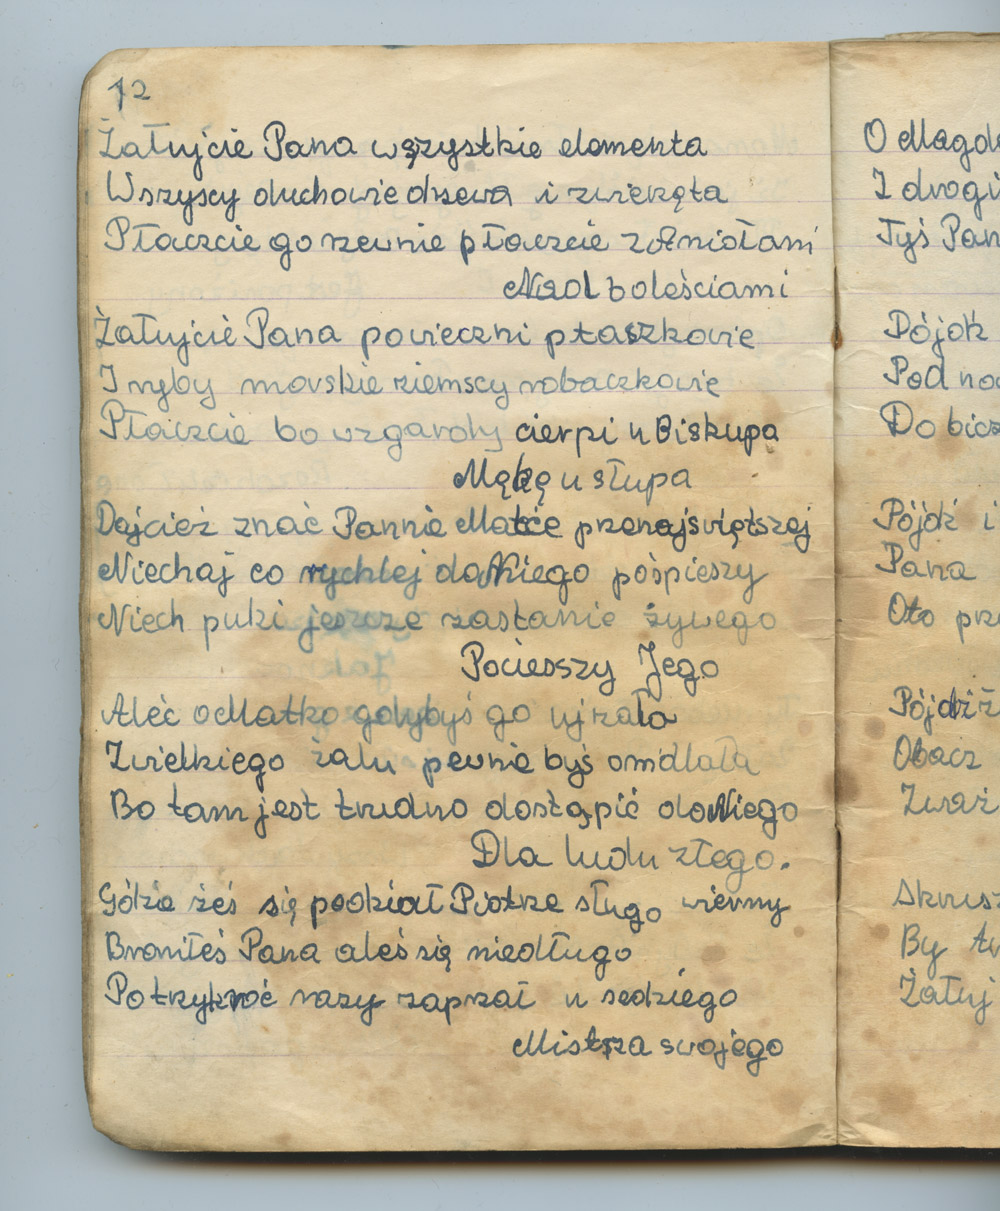 12
Żałujcie Pana wszystkie elementa
Wszyscy duchowie drzewa i zwierzęta
Płaczcie go rzewnie płaczcie z Aniołami
Nad boleściami
Żałujcie Pana powieczni ptaszkowie
I ryby morskie ziemscy robaczkowie
Płaczcie bo wzgardy cierpi u Biskupa
Mękę u słupa
Dajcież znać Pannie Matce przenajświętszej
Niechaj co rychlej do Niego pośpieszy
Niech puki jeszcze zastanie żywego
Pocieszy Jego
Aleć o Matko gdybyś go ujrzała
Z wielkiego żalu pewnie byś omdlała
Bo tam jest trudno dostąpić do Niego
Dla ludu złego.
Gdzie żeś się podział Piotrze sługo wierny
Broniłeś Pana aleś się niedługo
Po trzykroć razy zaprzał u sedziego
Mistrza swojego
O Magd
I drogi
Tyś Pan
Pójdź
Pod no
Do bicz
Pójdź i
Pana
Oto prz
Pójdźż
Obacz
Zważ
Skrusz
By tw
Żałuj